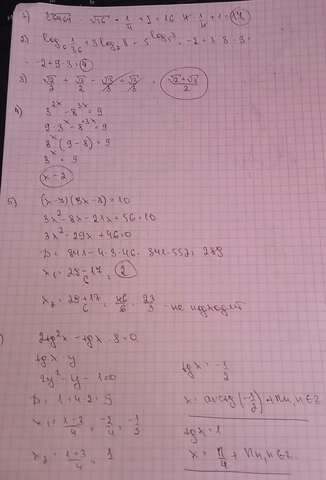 √16
2) log₆ 1/36 + 3 log₂ 8 - 5^log₅3 = -2 + 3·3
-2+9-3=4
3) √2/2 + √3/2 - √3/3 + √3/3 = √2+√3/2
4)
9·3ˣ - 8·3ˣ = 9
3ˣ(9-8)=9
3ˣ=9
x=2
5) (x-7)(3x-8)=10
3x²-8x-21x+56=10
3x²-29x+46=0
D=841-4·3·46=841-552=289
x₁=29-17/6=2
x₂=29+17/6=46/6=23/3 - не подходит
2tg²x-tgx-3=0
tgx=y
2y²-y-1=0
x₁=1-3/4=-2/4=-1/2
x₂=1+3/4=1
tgx=-1/2
x=arctg(-1/2)+πn, n∈Z
tgx=1
x=π/4+πn, n∈Z